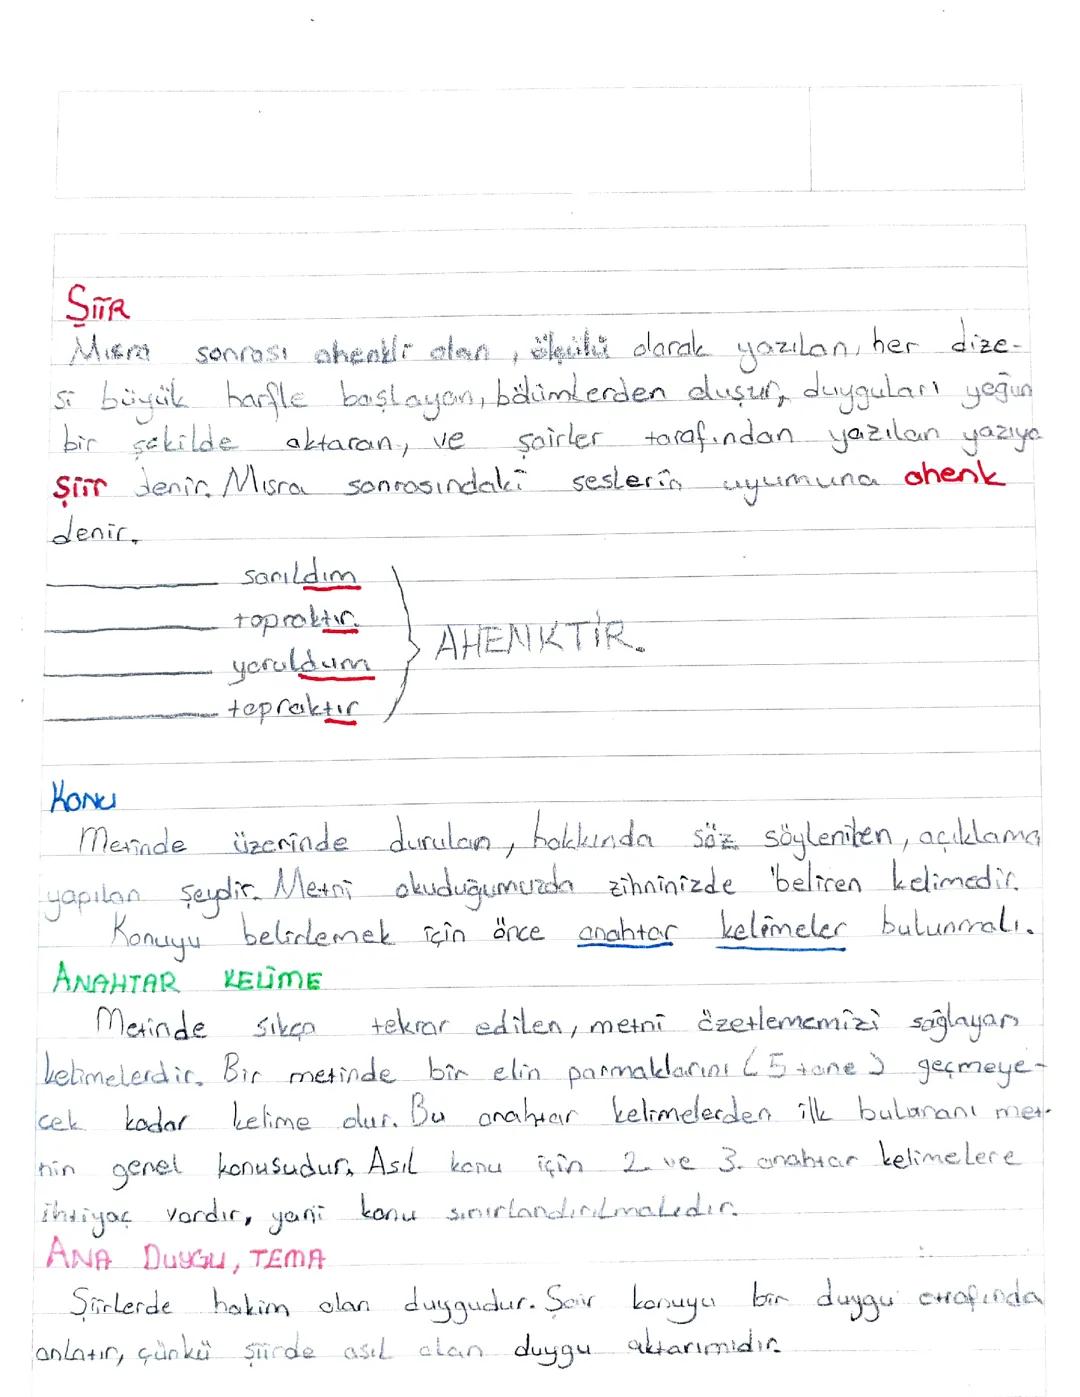 ŞİİR
Mısra sonrası ahenkli olan, ölçülü olarak yazılan, her dize-
si büyük harfle başlayan, bölümlerden oluşur, duyguları yoğun
bir şekilde aktaran, ve şairler tarafından yazılan yazıya
Şiir denir. Mısra sonrasındaki seslerin uyumuna ahenk
denir.
sarıldım
topraktır.
yoruldum
topraktır
AHENKTİR.
Konu
Metinde üzerinde durulan, hakkında söz söylenilen, açıklama
yapılan şeydir. Metni okuduğumuzda zihninizde beliren kelimedir.
Konuyu belirlemek için önce anahtar kelimeler bulunmalı.
ANAHTAR KELİME
Metinde sıkça tekrar edilen, metni özetlememizi sağlayan
kelimelerdir. Bir metinde bir elin parmaklarını (5 tane) geçmeye-
cek kadar kelime olur. Bu anahtar kelimelerden ilk bulunanı met-
nin genel konusudur. Asıl konu için 2. ve 3. anahtar kelimelere
ihtiyaç vardır, yani konu sınırlandırılmalıdır.
ANA DUYGU, TEMA
Şiirlerde hakim olan duygudur. Şair konuyu bir duygu etrafında
anlatır, çünkü şiirde asıl olan duygu aktarımıdır.